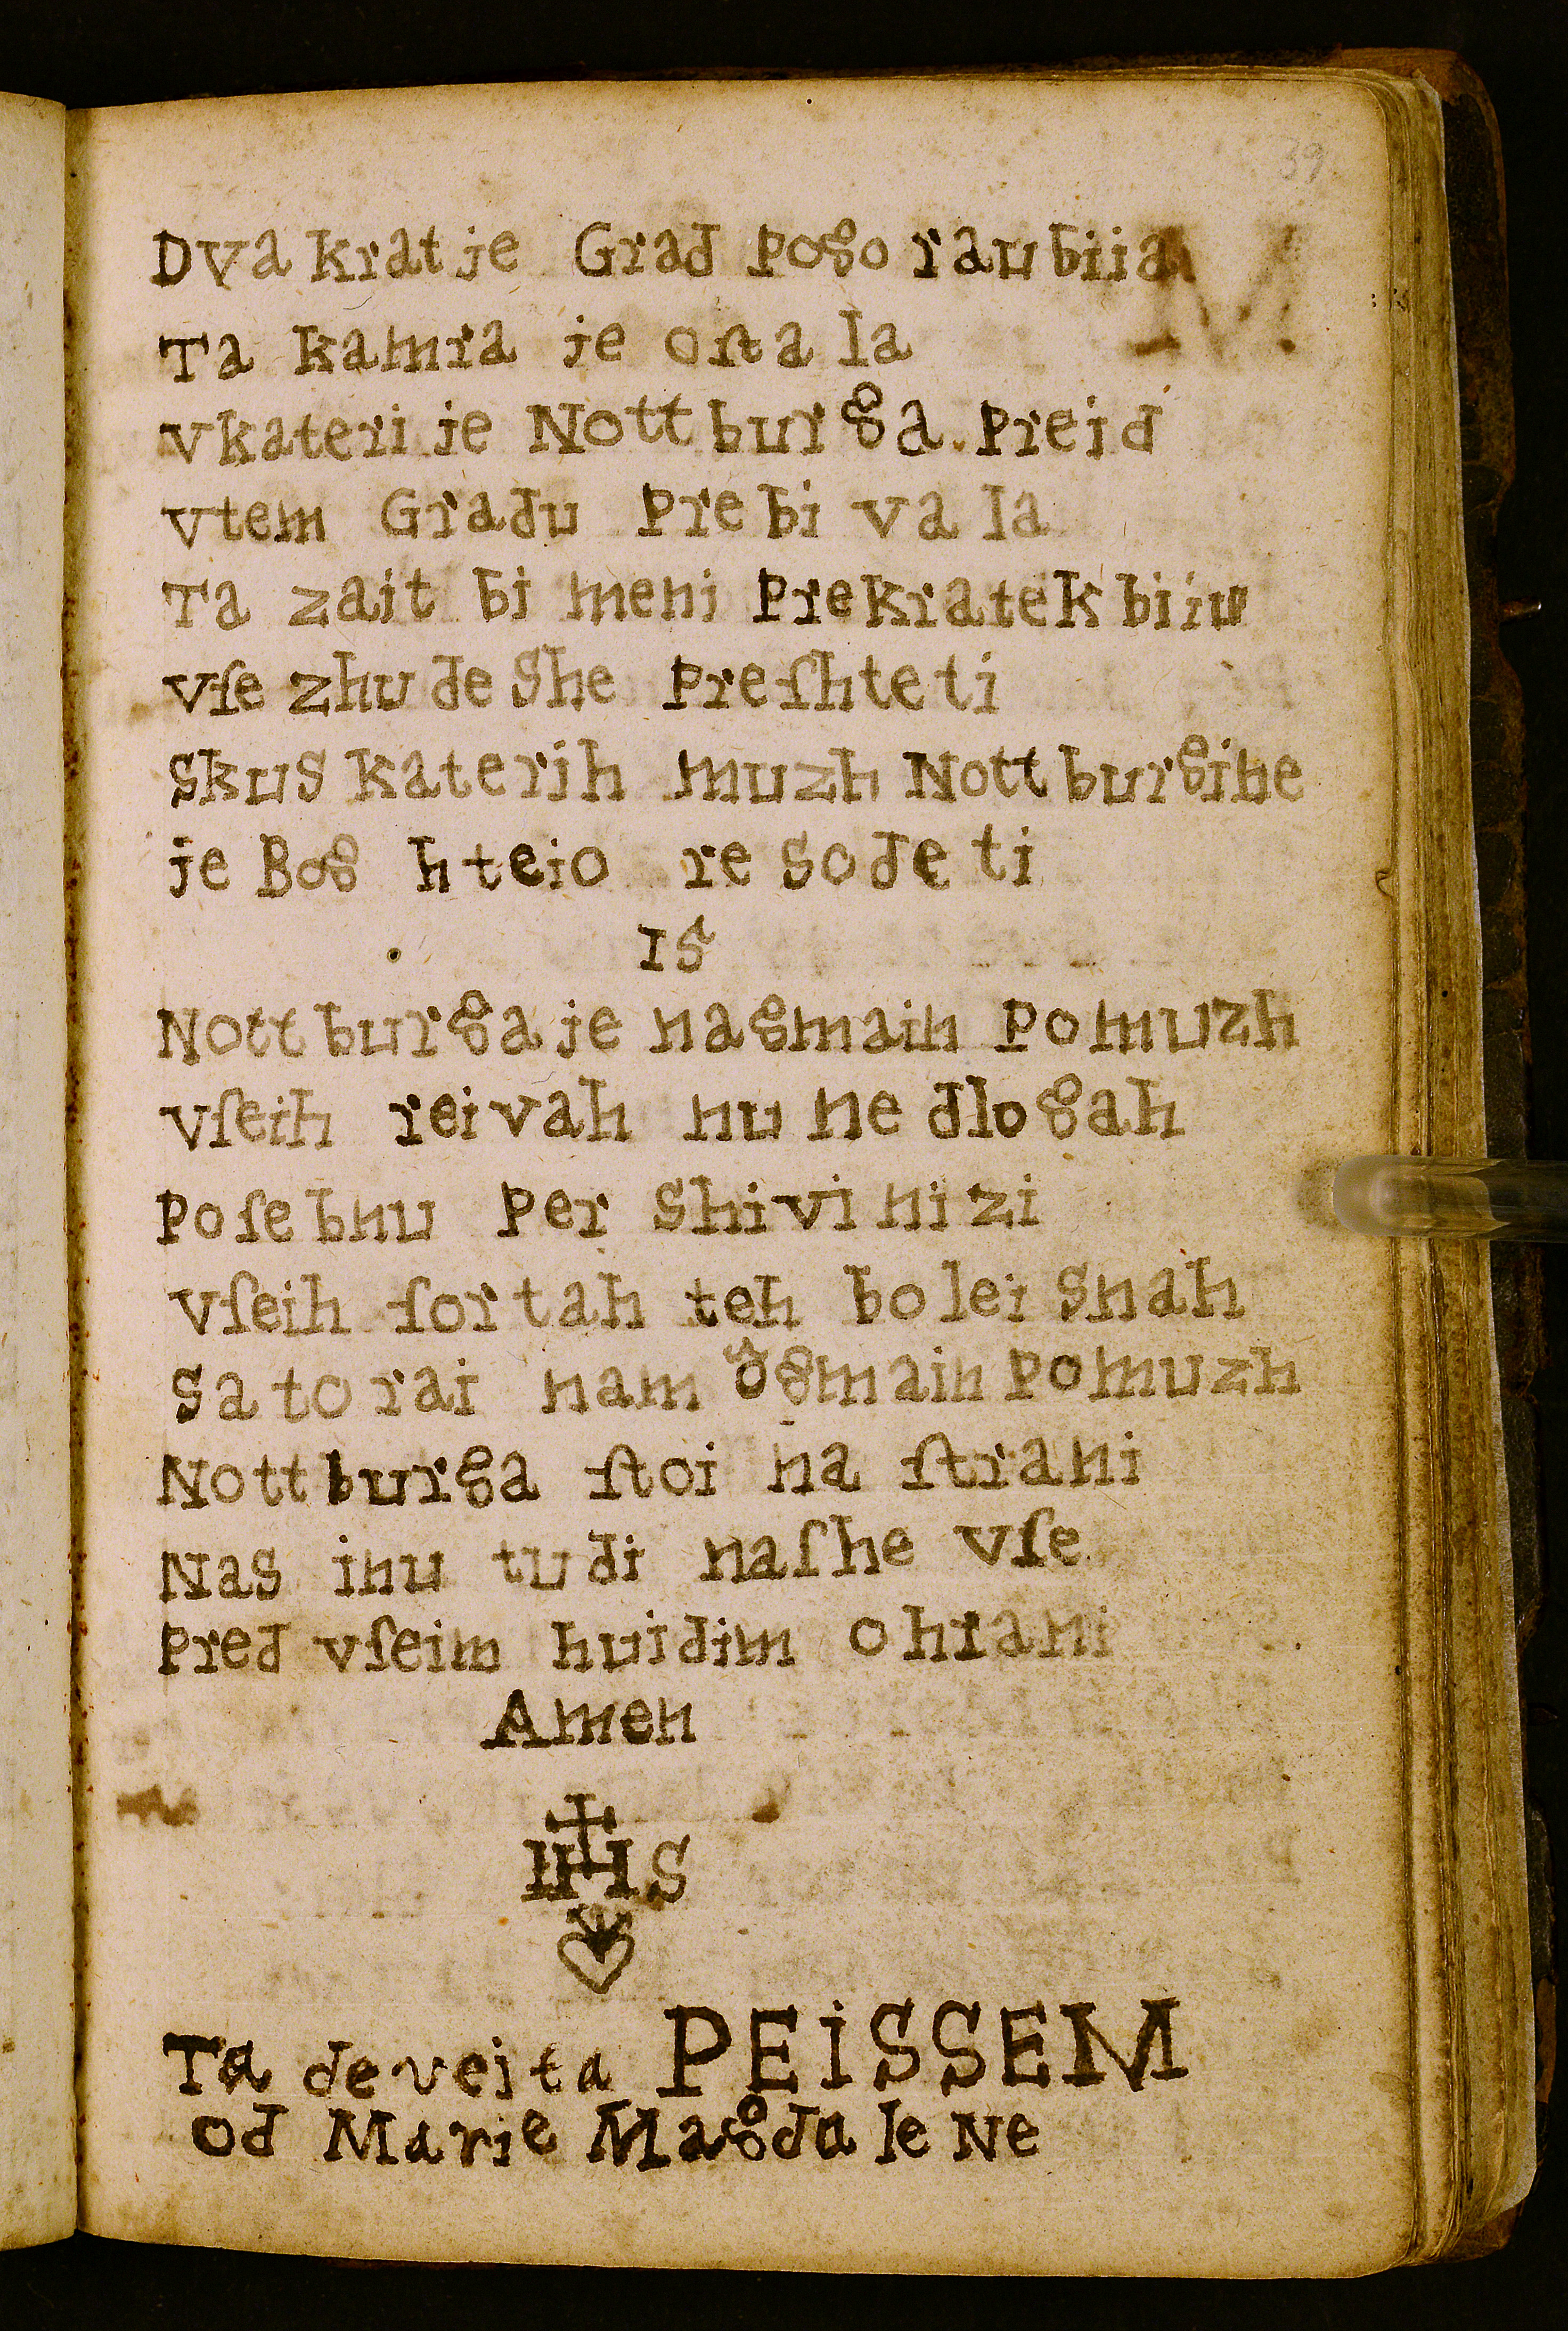 39
Dva krat je Grad pogorau biia
Ta kamra je oſta la
vkateri je Nottburga preid
vtem Gradu prebivala
Ta zait bi meni prekratek biiu
vſe zhudeshe preſhteti
skus katerih muzh Nottburgine
je Bog hteio resodeti
15
Nottburga je nagmain pomuzh
vſeih reivah nu nedlogah
poſebnu per shivinizi
vſeih ſortah teh boleisnah
satorai nam ôgmain pomuzh
Nottburga ſtoi na ſtrani
Nas inu tudi naſhe vſe
pred vſeim huidim ohrani
Amen
IHS
Ta deveita PEiSSEM
od Marie Magdalene